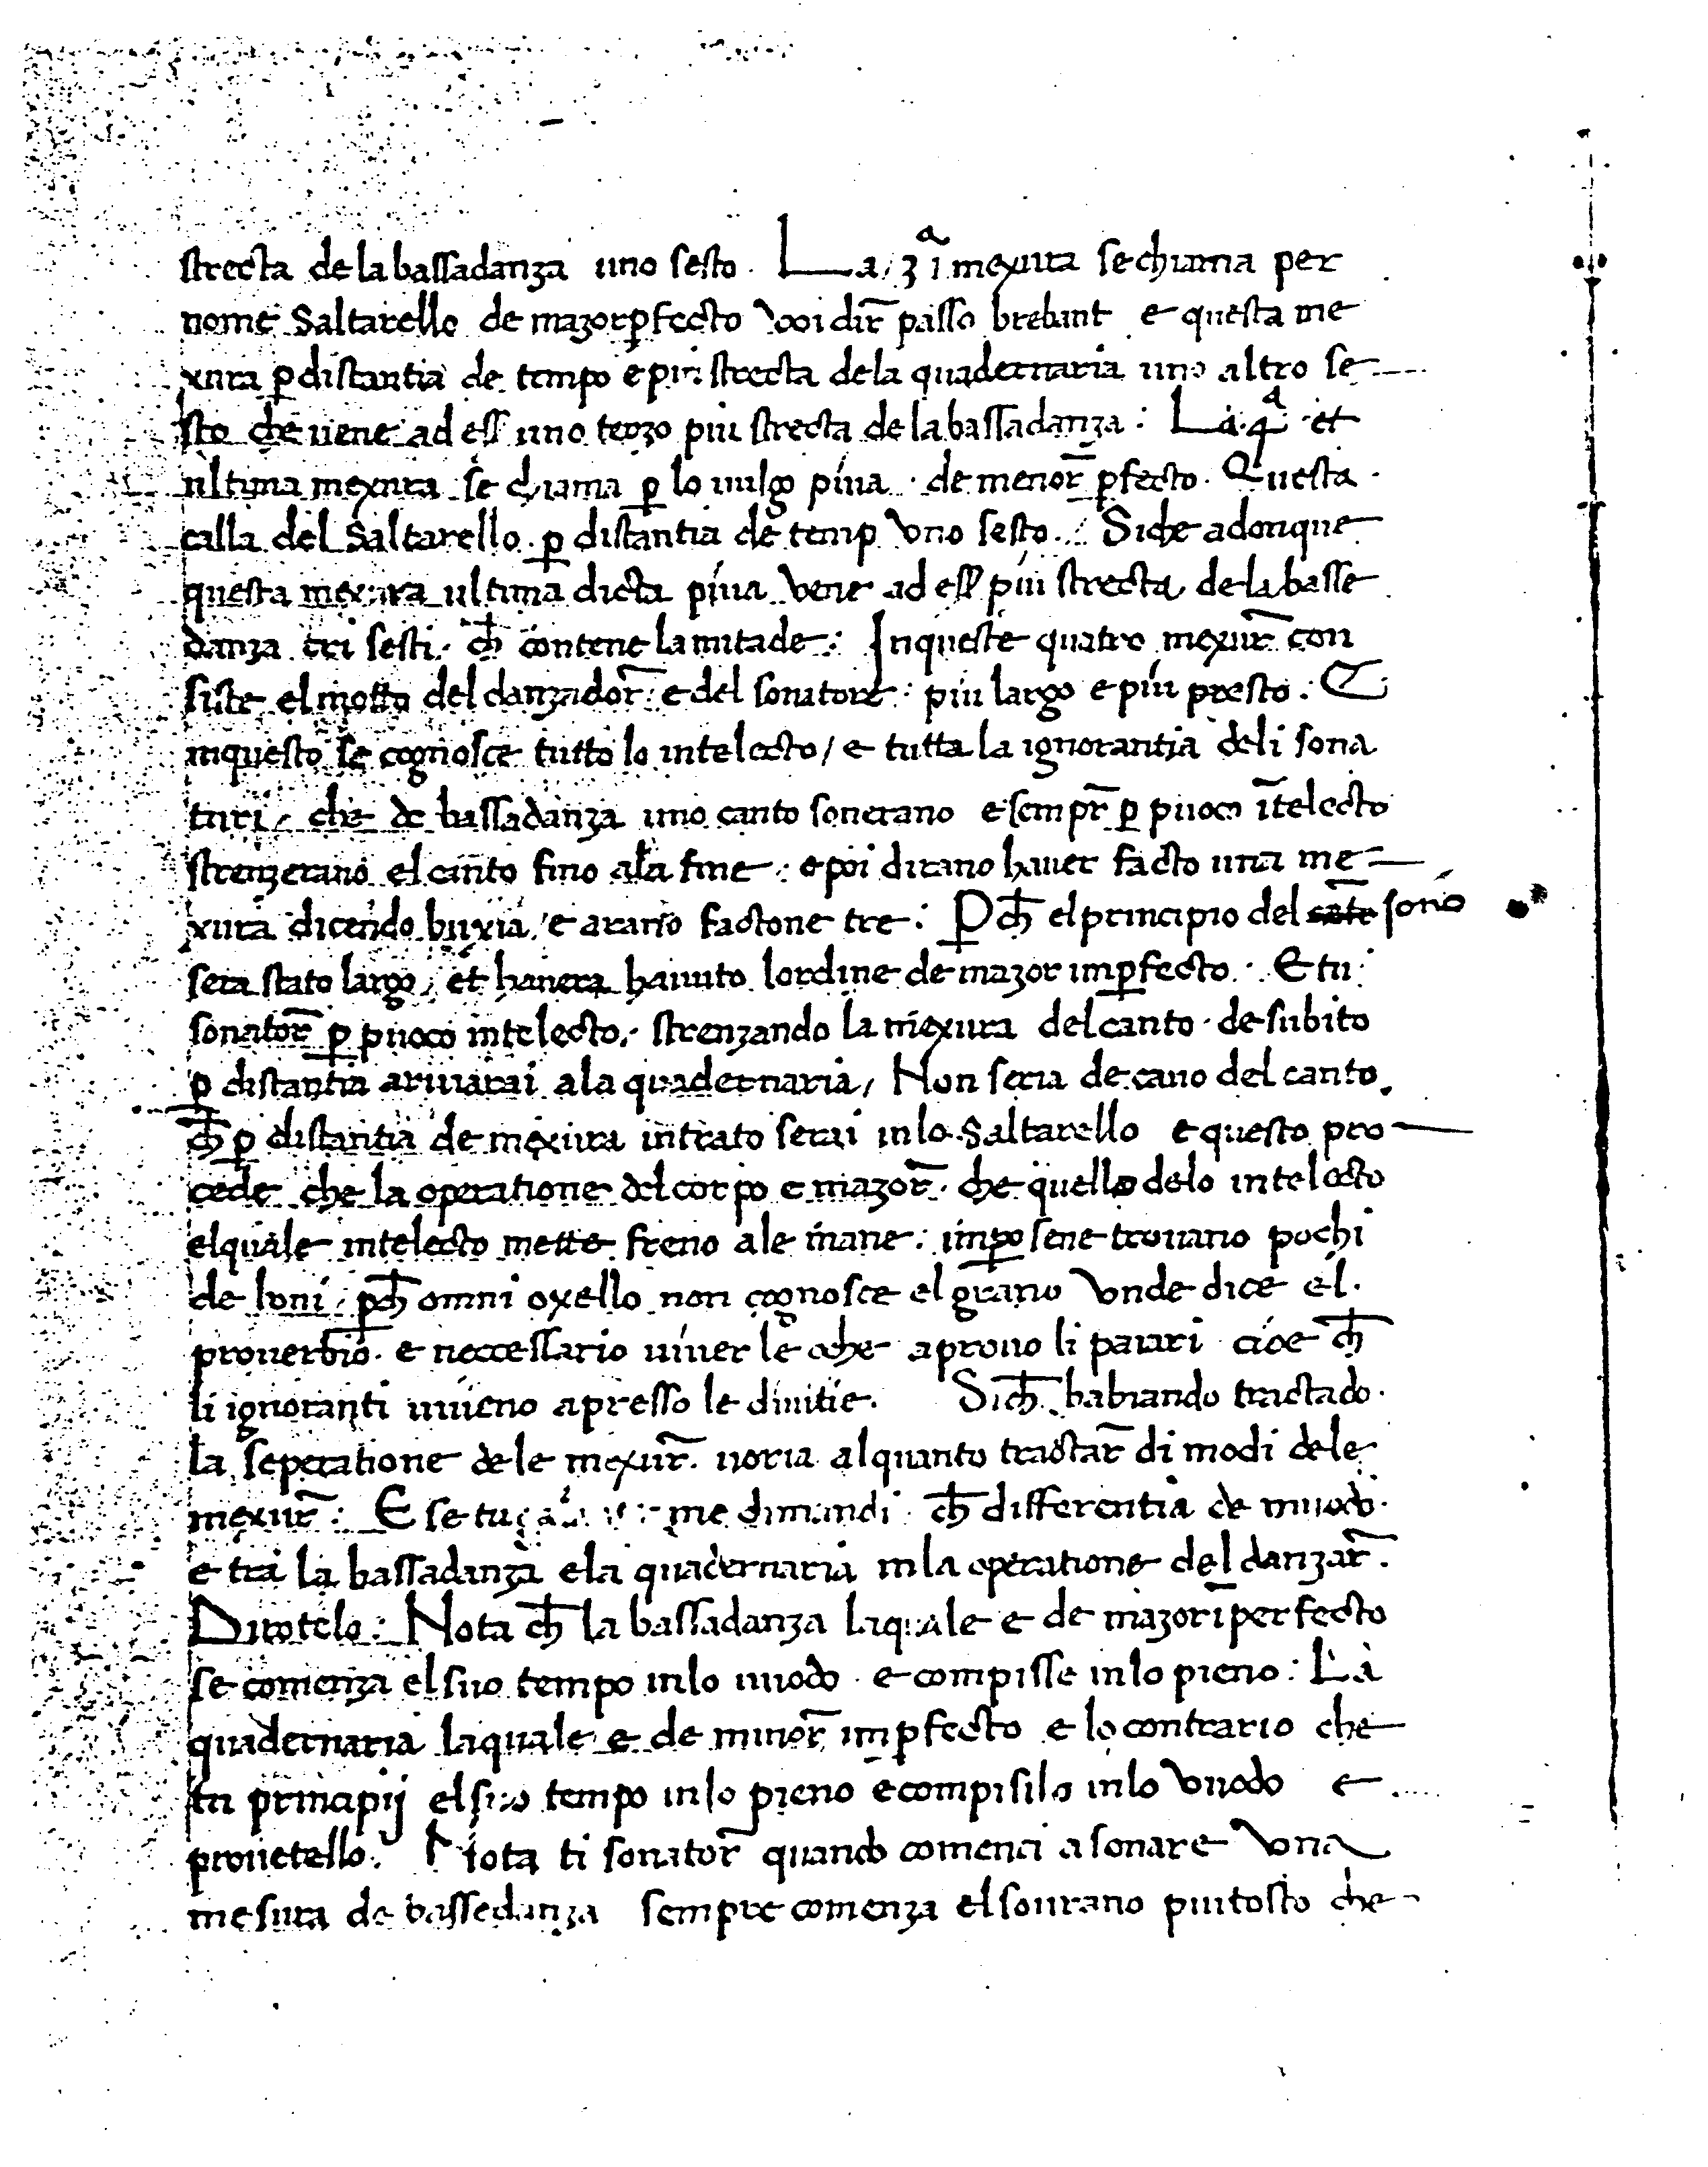 strecta de la bassadanza uno sesto. La 3ᵃ mexura se chiama per
nome Saltarello de mazor ꝑfecto Vooi dir̃ passo brebant e questa me
xura ꝑ distantia de tempo e piu strecta de la quadernaria uno altro se
sto che uene ad ess uno terzo piu strecta de la bassadanza: La .4ᵃ et
ultima mexura se chiama ꝑ lo uulgo piua. de menor̃ ꝑfecto. Questa
calla del Saltarello ꝑ distantia de temp Vno sesto. Siche adonque
questa mexura ultima dicta piua Vene ad ess piu strecta de la basse
danza tri sesti. ch̃ contene la mitade: In queste quatro mexur̃ con
siste el motto del danzador̃ e del sonatore: piu largo e piu presto. E
in questo se cognosce tutto lo intelecto / e tutta la ignorantia de li sona
turi / che de bassadanza uno canto sonerano e sempr̃ ꝑ puoco ĩtelecto
strenzerano el canto fino ala fine: e poi dirano hauer facto una me
xura dicendo buxia / e arano factone tre: Pch̃ el principio del sono
sera stato largo / et hauera hauuto lordine de mazor imꝑfecto. E tu
sonator̃ ꝑ puoco intelecto / strenzando la mexura del canto de subito
ꝑ distantia ariuarai a la quadernaria / Non seria de cano del canto.
ch̃ ꝑ distantia de mexura intrato serai in lo Saltarello e questo pro
cede che la operatione del corpo e mazor̃. che quello de lo intelecto
el quale intelecto mette freno a le mane: imꝑo se ne trouano pochi
de boni / ꝑch̃ omni oxello non cognosce el grano Vnde dice el
prouerbio. e neccessario uiuer le oche aprouo li pauari cioe ch̃
li ignoranti uiueno apresso le diuitie. Sich̃ habiando tractado
la seperatione de le mexur̃. uoria alquanto tractar̃ di modi de le
mexur̃: E se tu me dimandi ch̃ differentia de muodo
e tra la bassadanza e la quadernaria in la operatione del danzar̃.
Dirotelo: Nota ch̃ la bassadanza la quale e de mazor ĩperfecto
se comenza el suo tempo in lo uuodo e compisse in lo pieno: La
quadernaria la quale e de minor̃ imꝑfecto e lo contrario che
tu principij el suo tempo in lo pieno e compisilo in lo Vuodo e
prouetello. Nota ti sonator̃ quando comenci a sonare Vna
mesura de bassedanza sempre comenza el sourano piutosto che